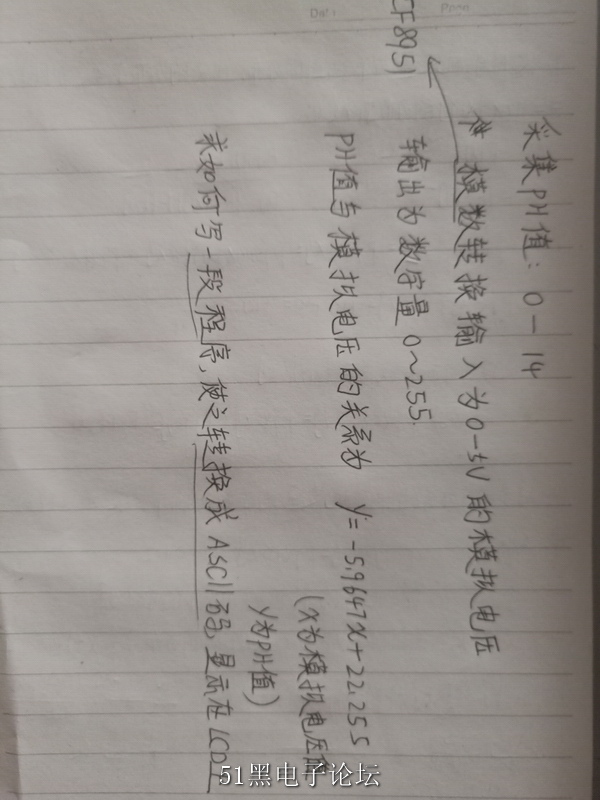 采集PH值: 0—14
模数转换输入为0-5V的模拟电压
CF8951
输出为数字量0~255.
PH值与模拟电压的关系为 y=-5.9647x+22.255
(x为模拟电压
y为PH值)
求如何写一段程序,使之转换成ASCII码,显示在LCD上
51黑电子论坛